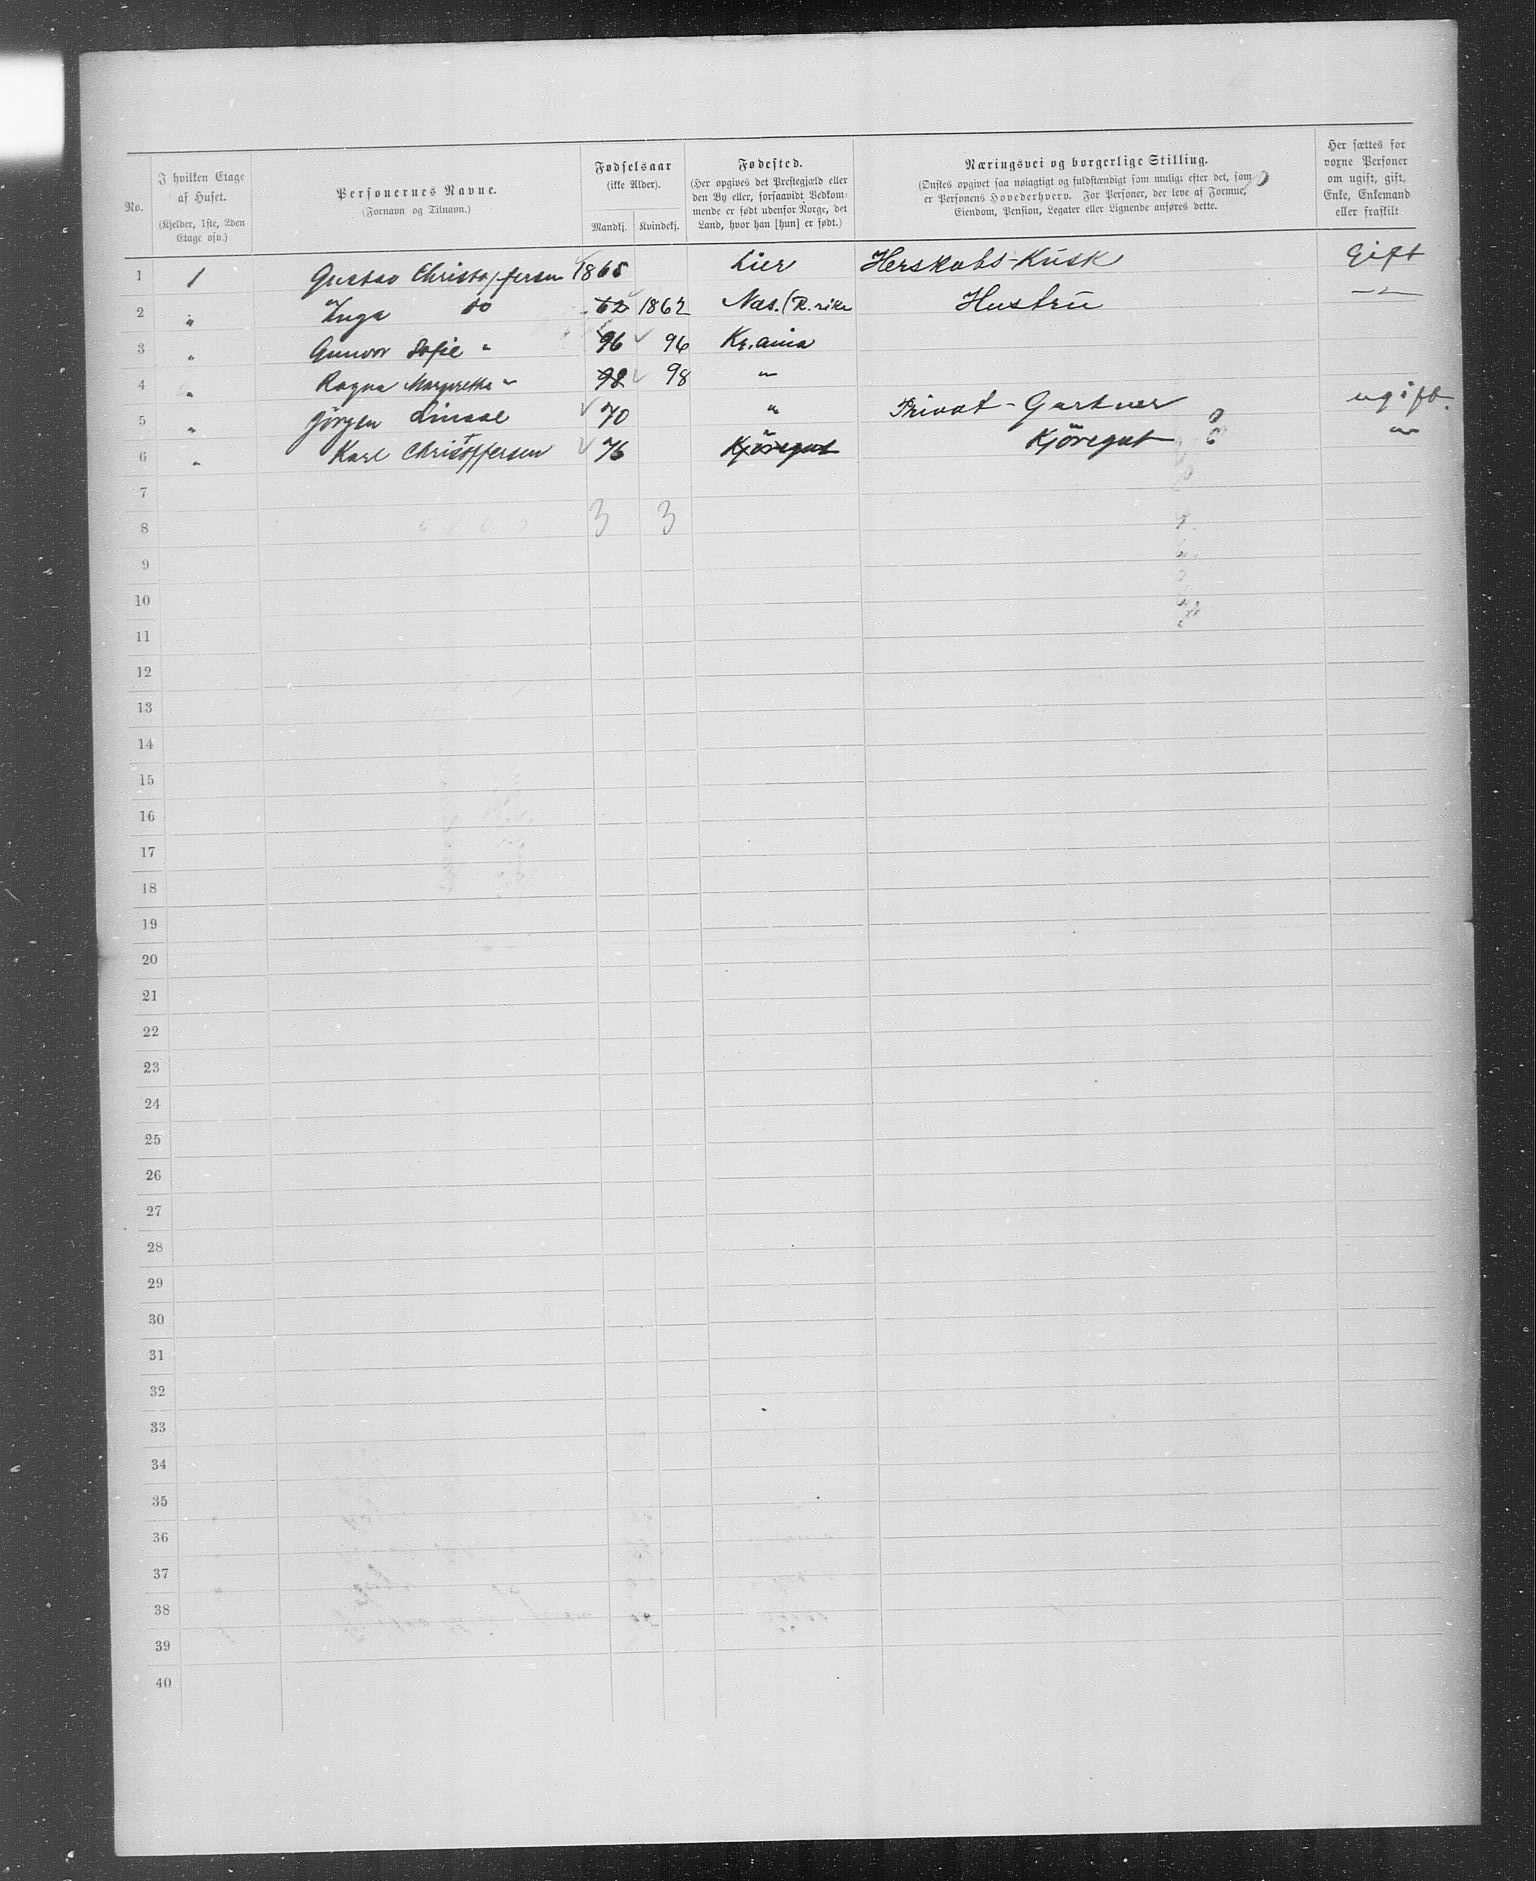 No.	I hvilken Etage af Huset. (Kjelder, 1ste, 2den Etage osv.)	Personernes Navne. (Fornavn og Tilnavn.)	Fødselsaar (ikke Alder). Mandkj. Kvindekj.	Fødested. (Her opgives det Prestegjæld eller den By eller, forsaavidt Vedkommende er født udenfor Norge, det Land, hvor han [hun] er født.)	Næringsvei og borgerlige Stilling. (Ønskes opgivet saa nøiagtigt og fuldstændigt som muligt efter det, som er Personens Hovederhverv. For Personer, der leve af Formue, Eiendom, Pension, Legater eller Lignende anføres dette.	Her sættes for voxne Personer om ugift, gift, Enke, Enkemand eller fraskilt
1 1 Gustav Christoffersen 1865 Lier Herskabs-Kusk Gift
2 " Inga do 62 1862 Næs. (R.rike Hustru — " —
3 " Gunvor Sofie " 96 96 Kr.ania
4 " Ragna Margrethe " 98 98 "
5 " Jörgen 70 " Privat-Gartner ugift.
6 " Karl Christoffersen 76 " Kjöregut Kjöregut "
7
8 3 3
9
10
11
12
13
14
15
16
17
18
19
20
21
22
23
24
25
26
27
28
29
30
31
32
33
34
35
36
37
38
39
40